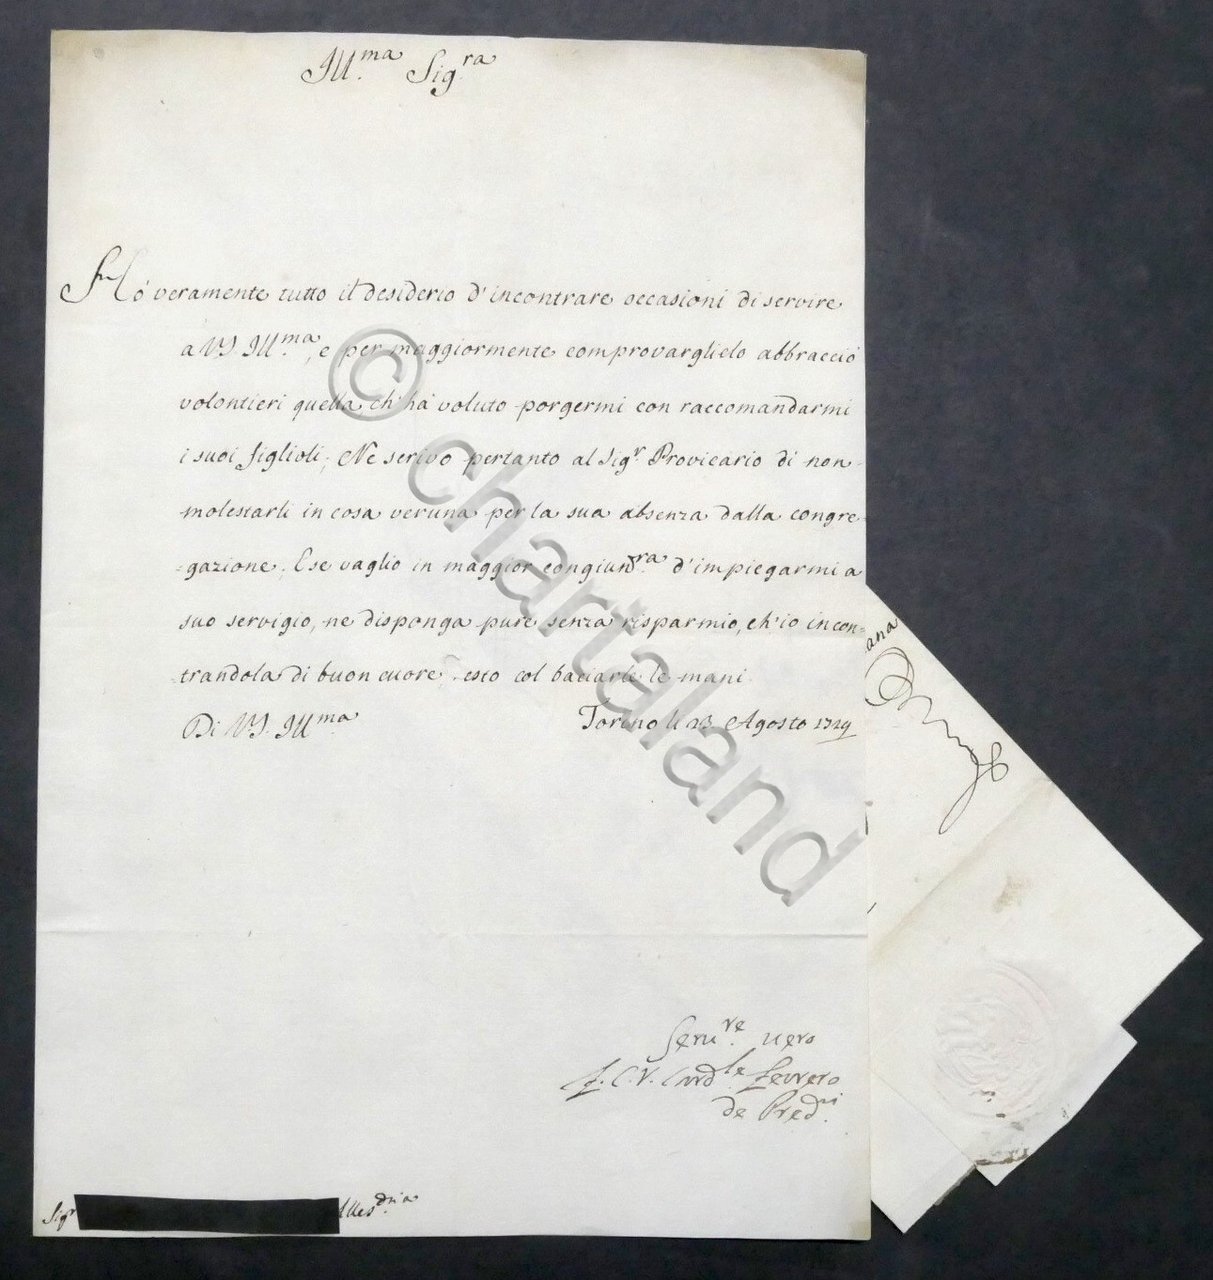 Ill.ma Sig.ra
Hò veramente tutto il desiderio d'incontrare occasioni di servire
a V.S. Ill.ma, e per maggiormente comprovarglielo abbracciò
volontieri quella ch'hà voluto porgermi con raccomandarmi
i suoi figlioli; Ne scrivo pertanto al Sig.r Provicario di non
molestarli in cosa veruna per la sua absenza dalla congre-
gazione. E se vaglio in maggior congiun.ra d'impiegarmi a
suo servigio, ne disponga pure senza risparmio, ch'io incon=
trandola di buon cuore, resto col baciarle le mani.
Di V.S. Ill.ma
Torino li 23 Agosto 1729
Seru.re uero
f. C. V. Card.le ferrero
de Pred.ri
Sig.r
Aless.dria
ana
© chartaland